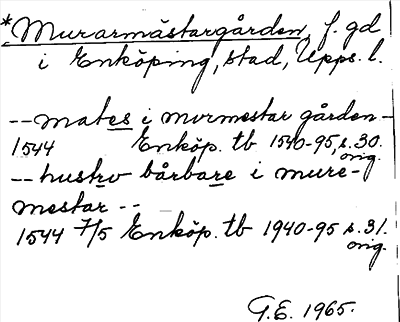 *Murarmästargården, f. gd
i Enköping, stad, Upps. l.
-- mates i murmestar gården -
1544 Enköp. tb 1540-95, s. 30.
orig.
-- hustrv bårbare i mure-
mestar --
1544 7/5 Enköp. tb 1940-95 s. 31.
orig.
G.E. 1965.